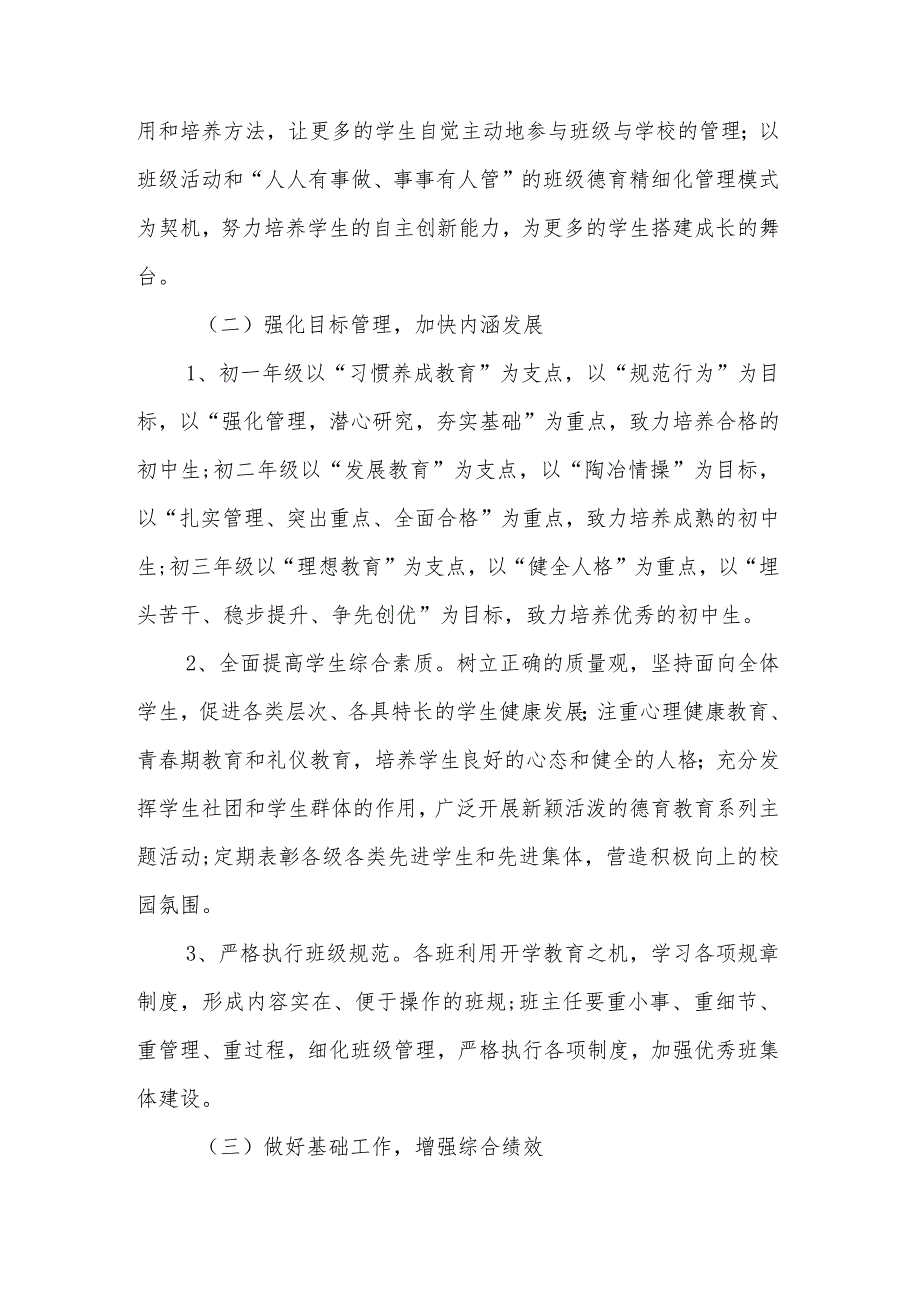 用和培养方法，让更多的学生自觉主动地参与班级与学校的管理；以
班级活动和“人人有事做、事事有人管”的班级德育精细化管理模式
为契机，努力培养学生的自主创新能力，为更多的学生搭建成长的舞
台。
（二）强化目标管理，加快内涵发展
1、初一年级以“习惯养成教育”为支点，以“规范行为”为目
标，以“强化管理，潜心研究，夯实基础”为重点，致力培养合格的
初中生;初二年级以“发展教育”为支点，以“陶冶情操”为目标，
以“扎实管理、突出重点、全面合格”为重点，致力培养成熟的初中
生;初三年级以“理想教育”为支点，以“健全人格”为重点，以“埋
头苦干、稳步提升、争先创优”为目标，致力培养优秀的初中生。
2、全面提高学生综合素质。树立正确的质量观，坚持面向全体
学生，促进各类层次、各具特长的学生健康发展；注重心理健康教育、
青春期教育和礼仪教育，培养学生良好的心态和健全的人格；充分发
挥学生社团和学生群体的作用，广泛开展新颖活泼的德育教育系列主
题活动;定期表彰各级各类先进学生和先进集体，营造积极向上的校
园氛围。
3、严格执行班级规范。各班利用开学教育之机，学习各项规章
制度，形成内容实在、便于操作的班规;班主任要重小事、重细节、
重管理、重过程，细化班级管理，严格执行各项制度，加强优秀班集
体建设。
（三）做好基础工作，增强综合绩效